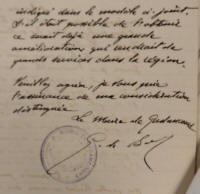 indiqué dans le modèle ci-joint.
S'il était possible de l'obtenir
ce serait déjà une grande
amélioration qui rendrait de
grands services dans la région.
Veuillez agréer, je vous prie
l'assurance de ma considération
distinguée
Le Maire de